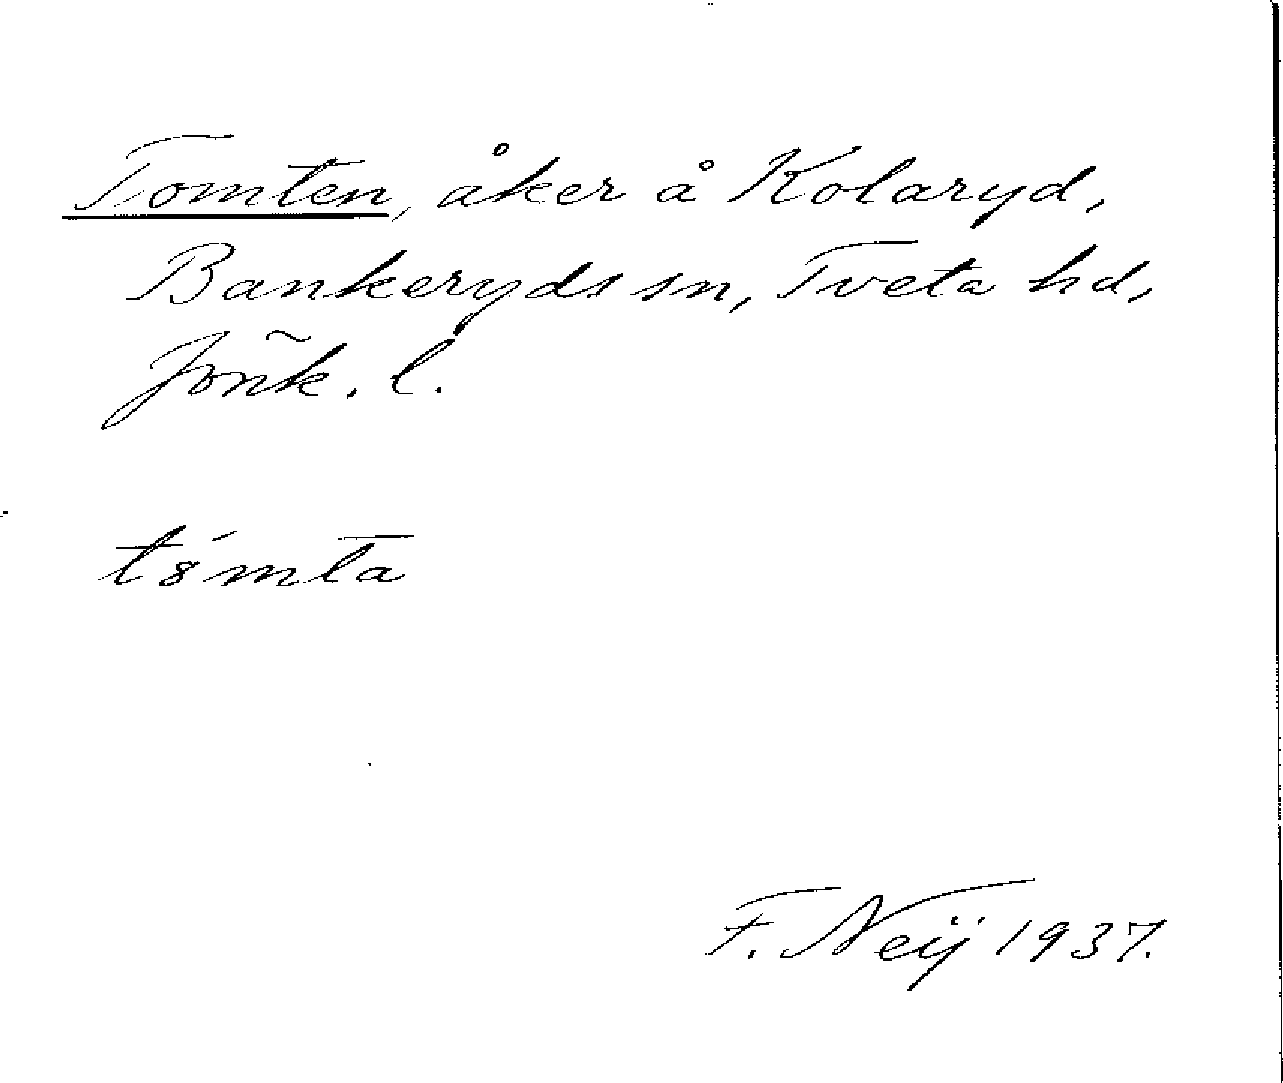 Tomten, åker å Kolaryd,
Bankeryds sn, Tveta hd,
Jönk. l.
t8́mta
F. Neij 1937.